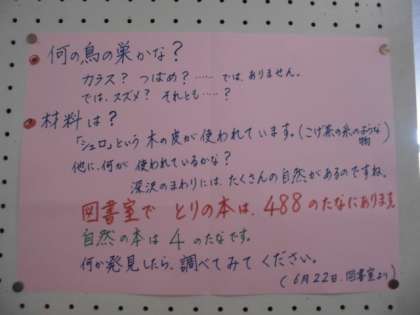 何の鳥の巣かな？
カラス？ つばめ？‥‥‥ では、ありません。
では、スズメ？ それとも‥‥？
材料は？
「シュロ」という木の皮が使われています。（こげ茶の糸のような物）
他に、何が使われているかな？
深沢のまわりには、たくさんの自然があるのですね。
図書室で とりの本は、488のたなにあります。
自然の本は4のたなです。
何か発見したら、調べてみてください。
（6月22日 図書室より）